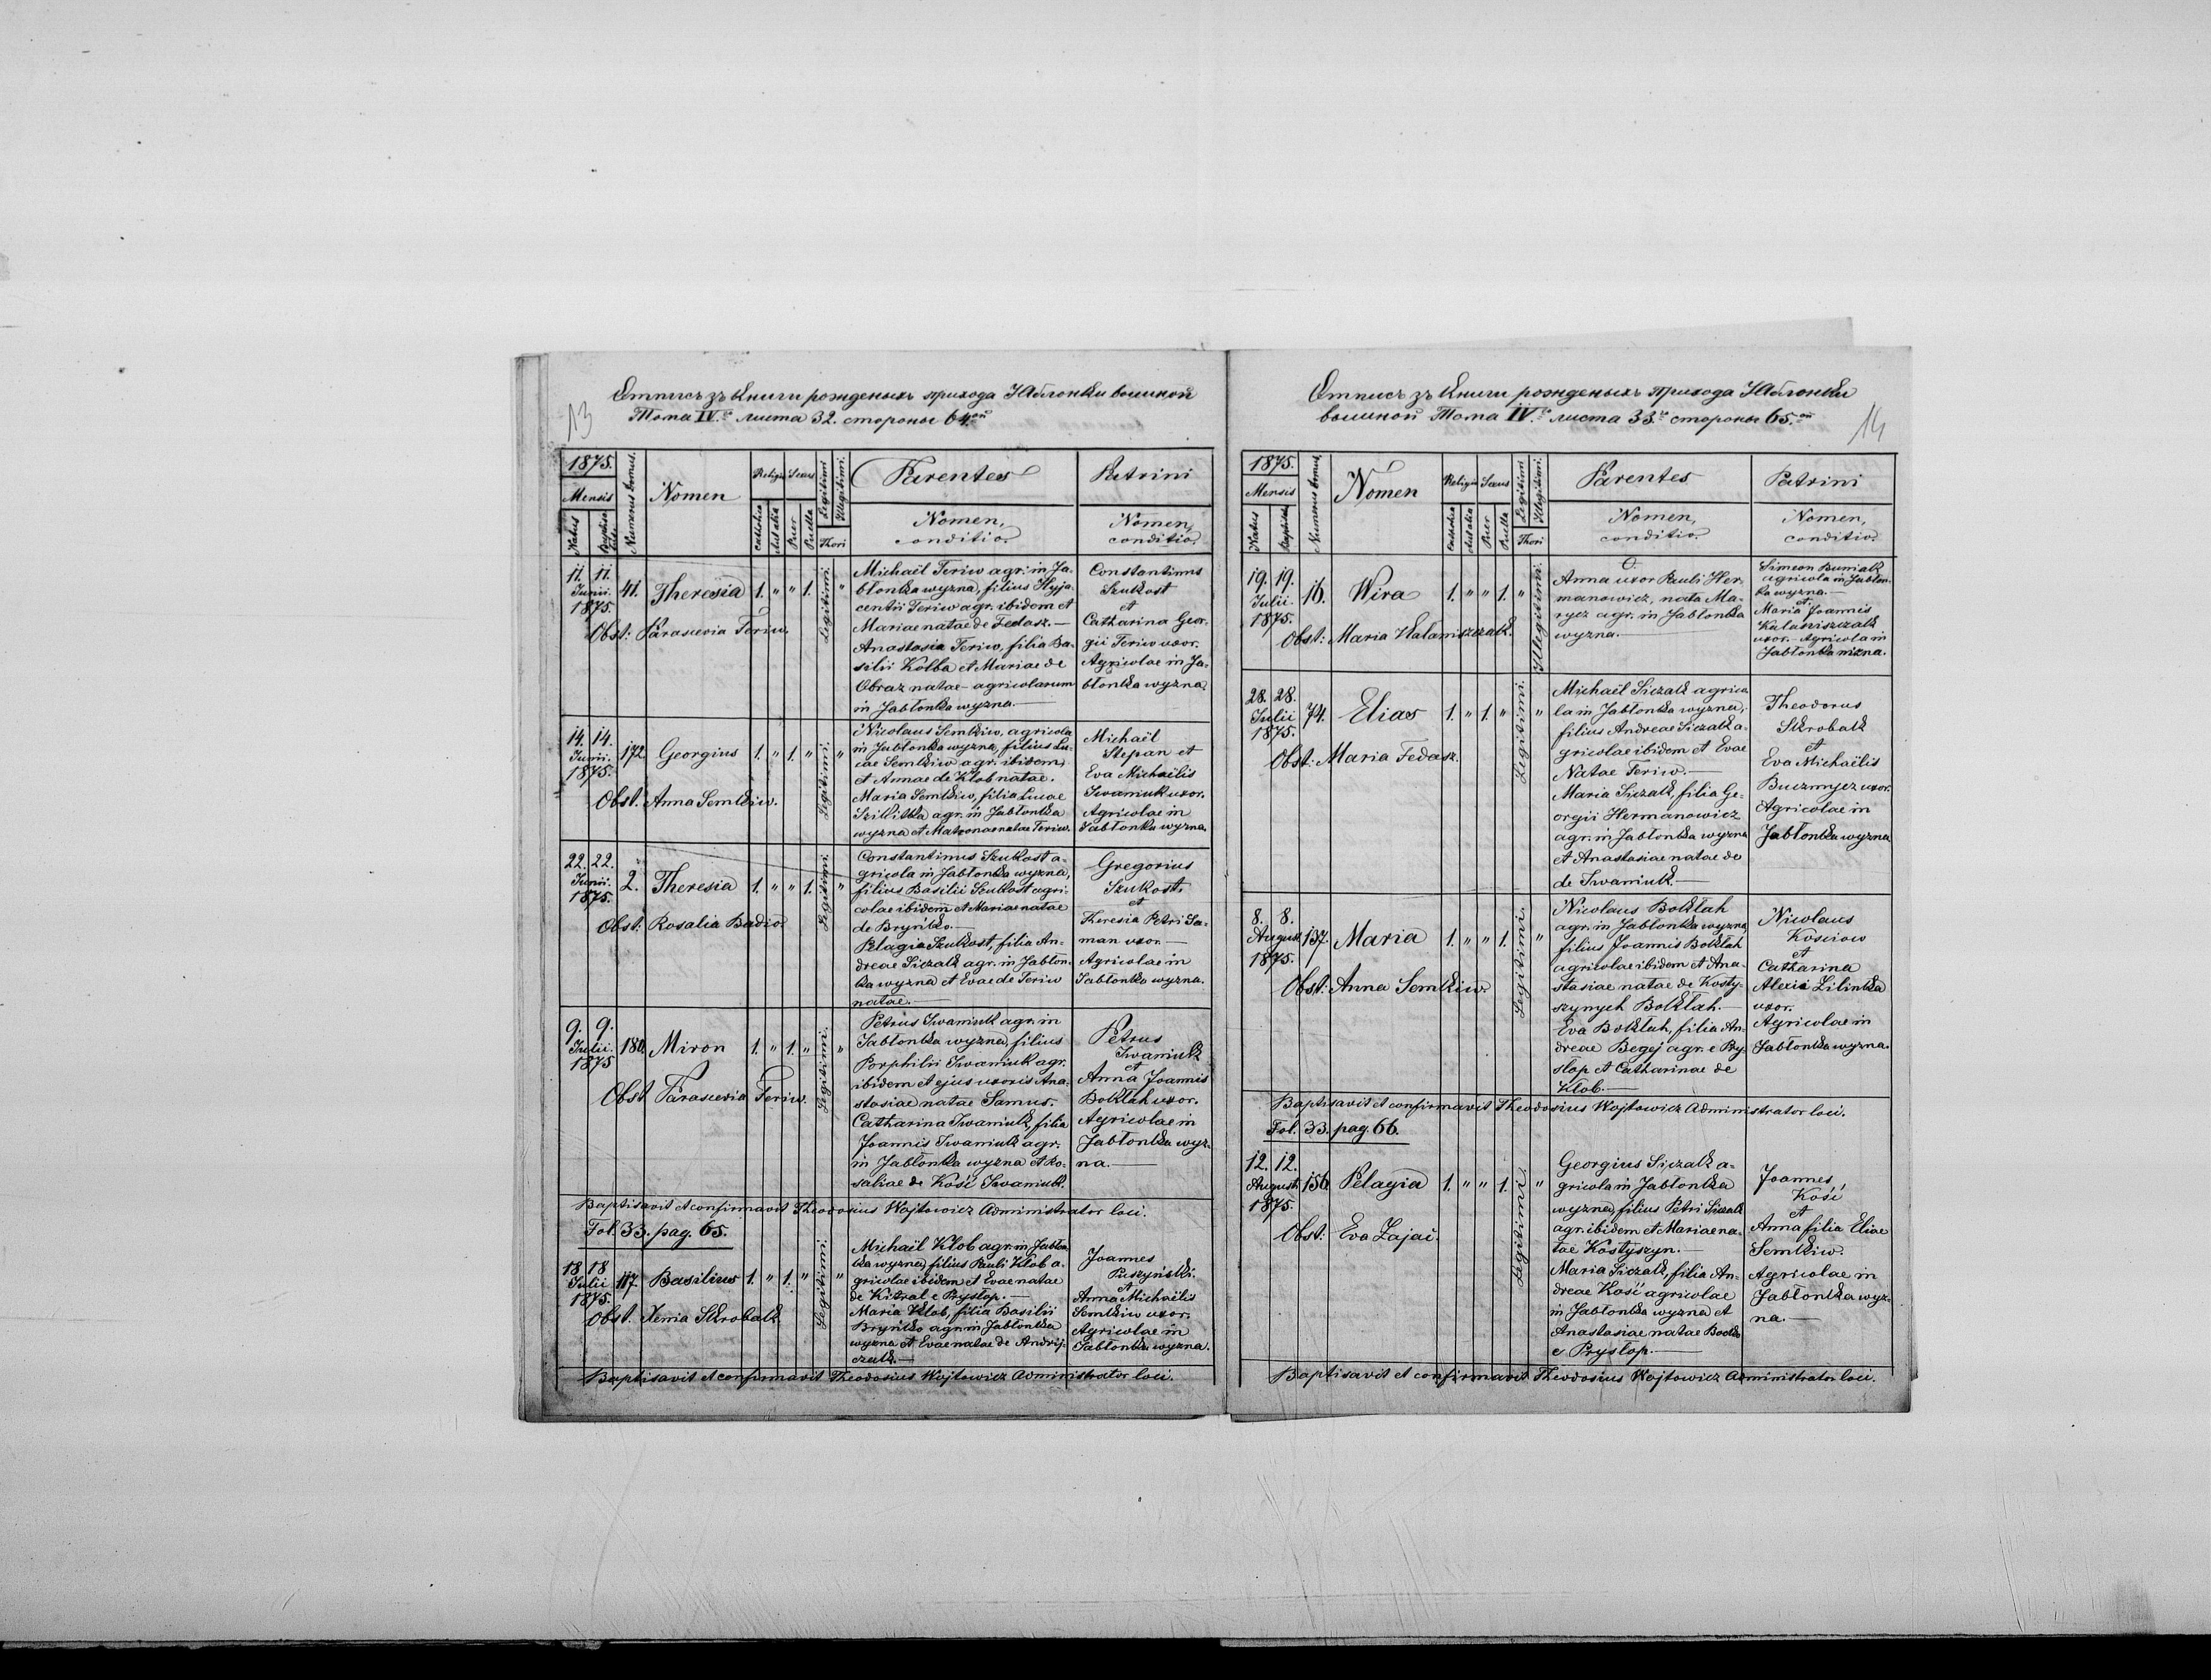 Отписъ зъ Книги рожденыхъ прихода Яблонки вышной
Тома IV. листа 32. стороны 64.ой
13
1875.
Mensis
Natus
Numerus domus.
Nomen
Religio
Sexus
Catholica
Aut alia
Puer
Puella
Legitimi
Illegitimi.
Thori
Parentes
Nomen,
conditio.
Patrini
Nomen,
conditio.
11. 11.
Junii.
1875.
41.
Theresia
1. " " 1.
Legitimi.
"
Obst: Parascevia Feriw.
Michaël Feriw agr. in Ja-
błonka wyzna, filius Hyja-
centii Feriw agr. ibidem et
Mariae natae de Fedasz.—
Anastasia Feriw, filia Ba-
silii Kolba et Mariae de
Obraz natae - agricolarum
in Jabłonka wyzna.—
Constantinus
Szukost
et
Catharina Geor-
gii Feriw uxor.
Agricolae in Ja-
błonka wyzna.
14. 14.
Junii.
1875.
172.
Georgius
1. " 1. "
Legitimi.
"
Obst: Anna Semkiw.
Nicolaus Semkiw, agricola
in Jabłonka wyzna, filius Lu-
cae Semkiw agr. ibidem,
et Annae de Klob natae.
Maria Semkiw, filia Lucae
agr. in Jabłonka
wyzna et Matronae natae Feriw.
Michaël
Stepan et
Eva Michaëlis
Iwaniuk uxor.
Agricolae in
Jabłonka wyzna.
22. 22.
Junii.
1875.
2.
Theresia
1. " " 1.
Legitimi.
"
Obst: Rosalia Badio.
Constantinus Szukost a-
gricola in Jabłonka wyzna,
filius Basilii Szukost agri-
colae ibidem et Mariae natae
de Bryńko.—
Pelagia Szukost, filia An-
dreae Siczak agr. in Jabłon-
ka wyzna et Evae de Feriw
natae.—
Gregorius
Szukost,
et
Theresia Petri Sa-
man uxor.—
Agricolae in
Jabłonka wyzna.
9. 9.
Julii.
1875
180.
Miron
1. " 1. "
Legitimi.
"
Obst Parascevia Feriw.
Petrus Iwaniuk agr. in
Jabłonka wyzna, filius
Porphilii Iwaniuk agr.
ibidem et ejus uxoris Ana-
stasiae natae Samus.
Catharina Iwaniuk, filia
Joannis Iwaniuk agr.
in Jabłonka wyzna et Ro-
saliae de Kość Iwaniuk.
Petrus
Iwaniuk
et
Anna Joannis
Bokłah uxor.
Agricolae in
Jabłonka wyz-
na.—
Baptisavit et confirmavit Theodosius Wojtowicz Administrator loci.
Fol. 33. pag. 65.
18 18
Julii
1875.
117.
Basilius
1. " 1. "
Legitimi.
"
Obst. Xenia Skrobak
Michaël Klob agr. in Jabłon-
ka wyzna, filius Pauli Klob a-
gricolae ibidem et Evae natae
de Kitral e Prysłop.—
Maria Klob, filia Basilii
Bryńko agr. in Jabłonka
wyzna et Evae natae de Andrij-
czak.—
Joannes
Puszyński.
et
Anna Michaëlis
Semkiw uxor.
Agricolae in
Jabłonka wyzna.
Baptisavit et confirmavit Theodosius Wojtowicz Administrator loci.
Отписъ зъ Книги рожденыхъ прихода Яблонки
вышной Тома IV. листа 33. стороны 65.ой
14
1875.
Mensis
Natus
Numerus domus,
Nomen
Religio
Sexus
Catholica
Aut alia
Puer
Puella
Legitimi
Illegitimi.
Thori
Parentes
Nomen,
conditio.
Patrini
Nomen,
conditio.
19. 19.
Julii.
1875.
16.
Wira
1. " " 1.
"
Illegitimi.
Obst: Maria Hałaniszczak.
O.
Anna uxor Pauli Her-
manowicz, nata Ma-
rycz agr. in Jabłonka
wyzna.—
Simeon Buniak
agricola in Jabłon-
ka wyzna.—
et
Maria Joannis
Kałaniszczak
uxor.- Agricola in
Jabłonka nizna.
28. 28.
Julii
1875.
74.
Elias
1. " 1. "
Legitimi.
"
Obst: Maria Fedasz.
Michaël Siczak agrico-
la in Jabłonka wyzna,
filius Andreae Siczak a-
gricolae ibidem et Evae
Natae Feriw.—
Maria Siczak, filia Ge-
orgii Hermanowicz
agr. in Jabłonka wyzna
et Anastasiae natae de
de Iwaniuk.—
Theodorus
Skrobak
et
Eva Michaëlis
Buczmyez uxor.
Agricolae in
Jabłonka wyzna
8. 8.
August.
1875.
137.
Maria
1. " " 1.
Legitimi.
"
Obst: Anna Semkiw.
Nicolaus Bokłah
agr. in Jabłonka wyzna,
filius Joannis Bokłah
agricolae ibidem et Ana-
stasiae natae de Kosty-
szynych Bokłah.—
Eva Bokłah, filia An-
dreae Begej agr. e Pry-
słop et Catharinae de
Klob.—
Nicolaus
Kosciow
et
Catharina
Alexii Zilinka
uxor.
Agricolae in
Jabłonka wyzna.
Baptisavit et confirmavit Theodosius Wojtowicz Administrator loci.
Fol. 33. pag. 66.
12. 12.
August.
1875.
156.
Pelagia
1. " " 1.
Legitimi.
"
Obst: Eva Zajac.
Georgius Siczak a-
gricola in Jabłonka
wyzna, filius Petri Siczak
agr. ibidem et Mariae na-
tae Kostyszyn.—
Maria Siczak, filia An-
dreae Kość agricolae
in Jabłonka wyzna et
Anastasiae natae Bocko
e Prysłop.—
Joannes,
Kość
et
Anna filia Eliae
Semkiw.
Agricolae in
Jabłonka wyz-
na.—
Baptisavit et confirmavit Theodosius Wojtowicz Administrator loci.